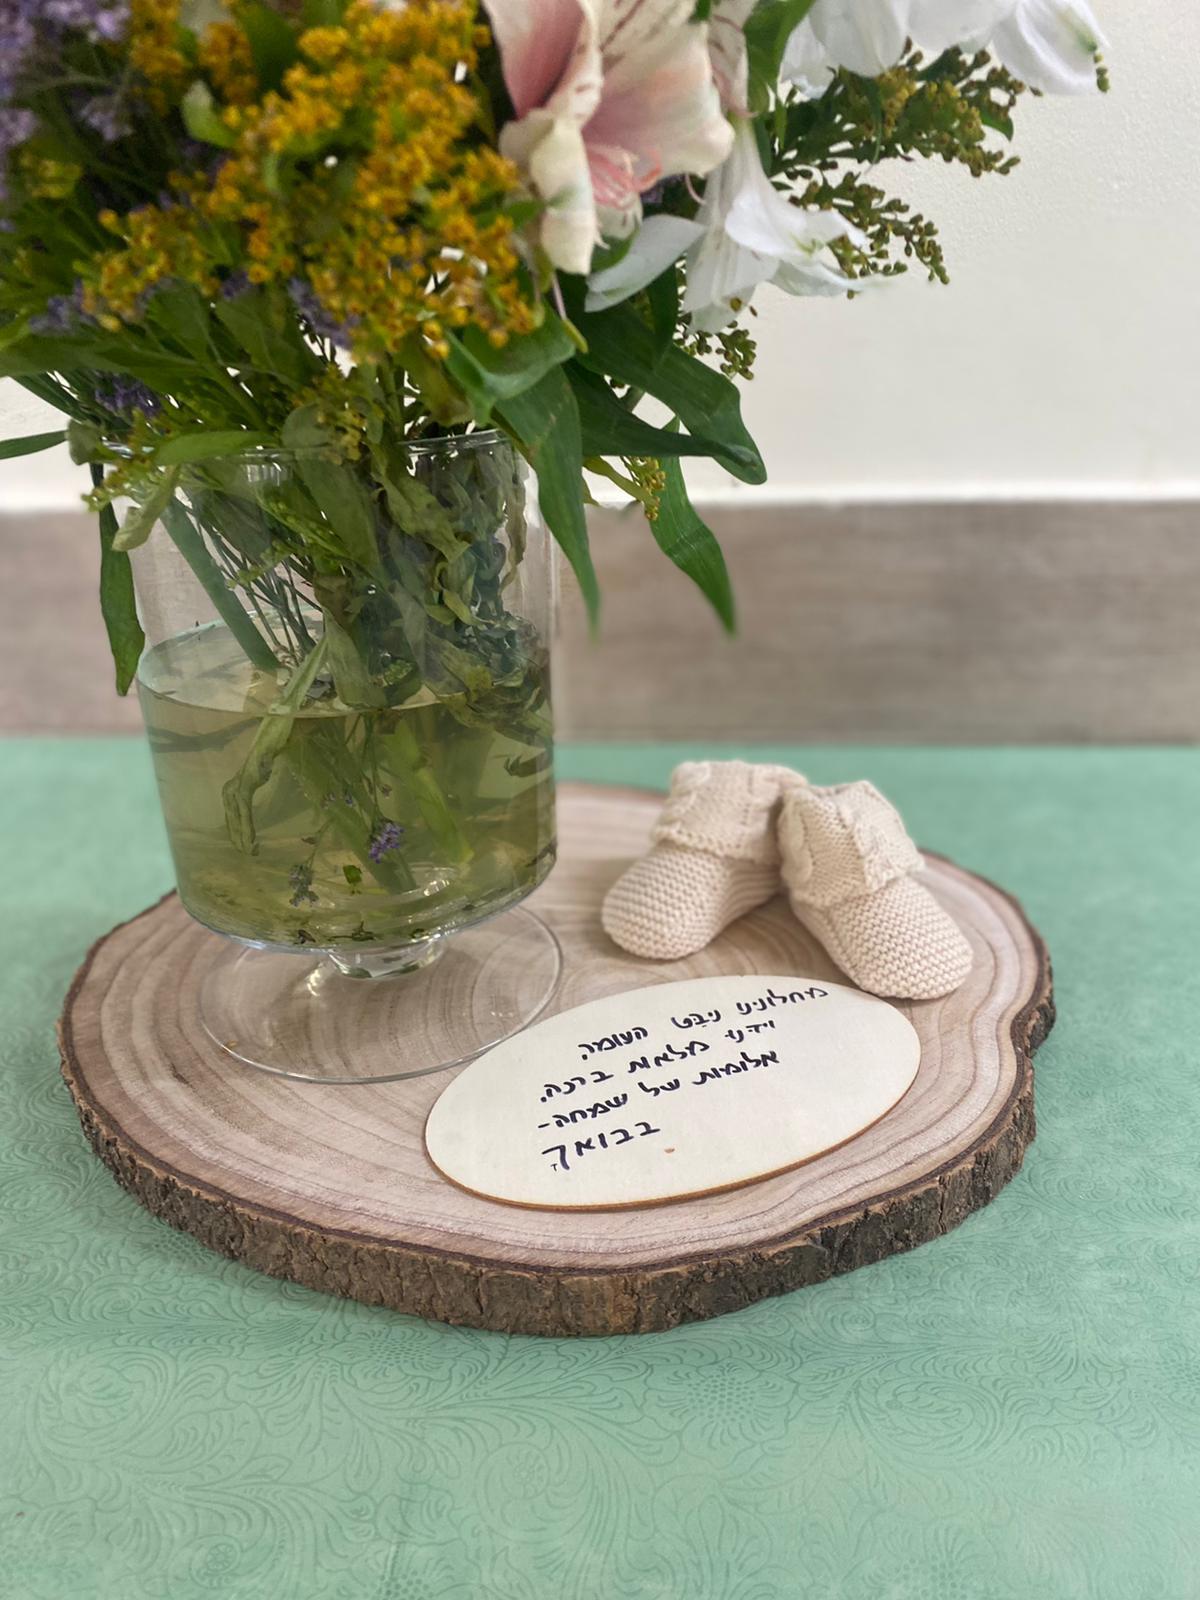 מחלונינו ניבט העומר,
וידנו מלאות ברכה,
אלומות של שמחה-
בבואך